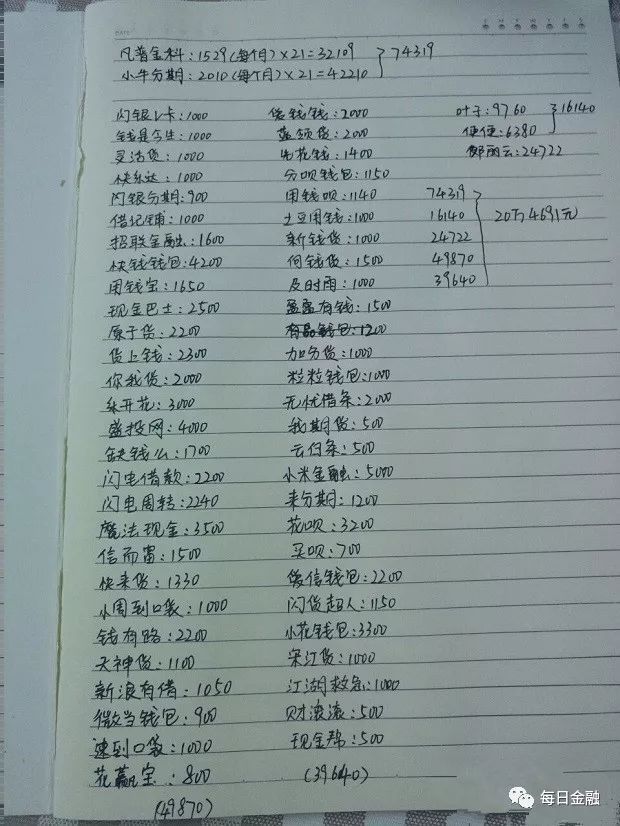 凡普金科：1529(每个月)×21=32109
小牛分期：2010(每个月)×21=42210
74319
闪银V卡：1000
钱是今生：1000
灵活贷：1000
快乐达：1000
闪银分期：900
借记铺：1000
招联金融：1600
快钱钱包：4200
用钱宝：1650
现金巴士：2500
原子贷：2200
贷上钱：2300
你我贷：2000
乐开花：3000
盛投网：4000
缺钱么：1700
闪电借款：2200
闪电周转：2240
魔法现金：3500
信而富：1500
快来贷：1330
小周到口袋：1000
钱有路：2200
天神贷：1100
新浪有借：1050
微当钱包：900
速到口袋：1000
花赢宝：800
(49870)
贷钱钱：2000
蓝领贷：2000
先花钱：1400
分呗钱包：1150
用钱呗：1140
土豆用钱：1000
新钱贷：1000
何钱贷：1500
及时雨：1000
盈盈有钱：1500
有品钱包：1200
加分贷：1000
粒粒钱包：1000
无忧借条：2000
我期贷：500
云白条：500
小米金融：5000
来分期：1200
花呗：3200
买呗：700
爱信钱包：2200
闪贷超人：1150
小花钱包：3300
宋江贷：1000
江湖救急：1000
财滚滚：500
现金帮：500
(39640)
叶子：9760
便便：6380
16140
邹丽云：24722
74319
16140
24722
49870
39640
20万4691元
每日金融